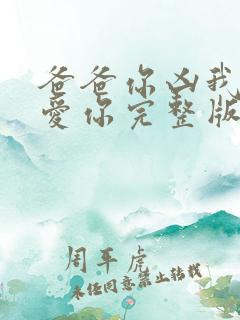 爸爸你凶我
爱你完整版
周年虎
未经同意禁止转载